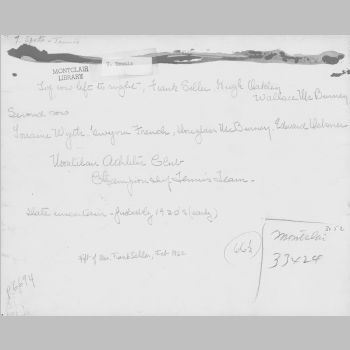 T. Sports - Tennis
MONTCLAIR
LIBRARY
T. Tennis
Top row left to right, Frank Seller Hugh Oakley
Wallace McBurney
Second row
Lorraine Wyth, Gwynn French, Douglas McBurney, Edward
Montclair Athletic Club
Championship Tennis Team -
Date uncertain - probably 1920's (early)
Gift of Mrs. Frank Seller, Feb 1962
66½
3152
Montclair
33424